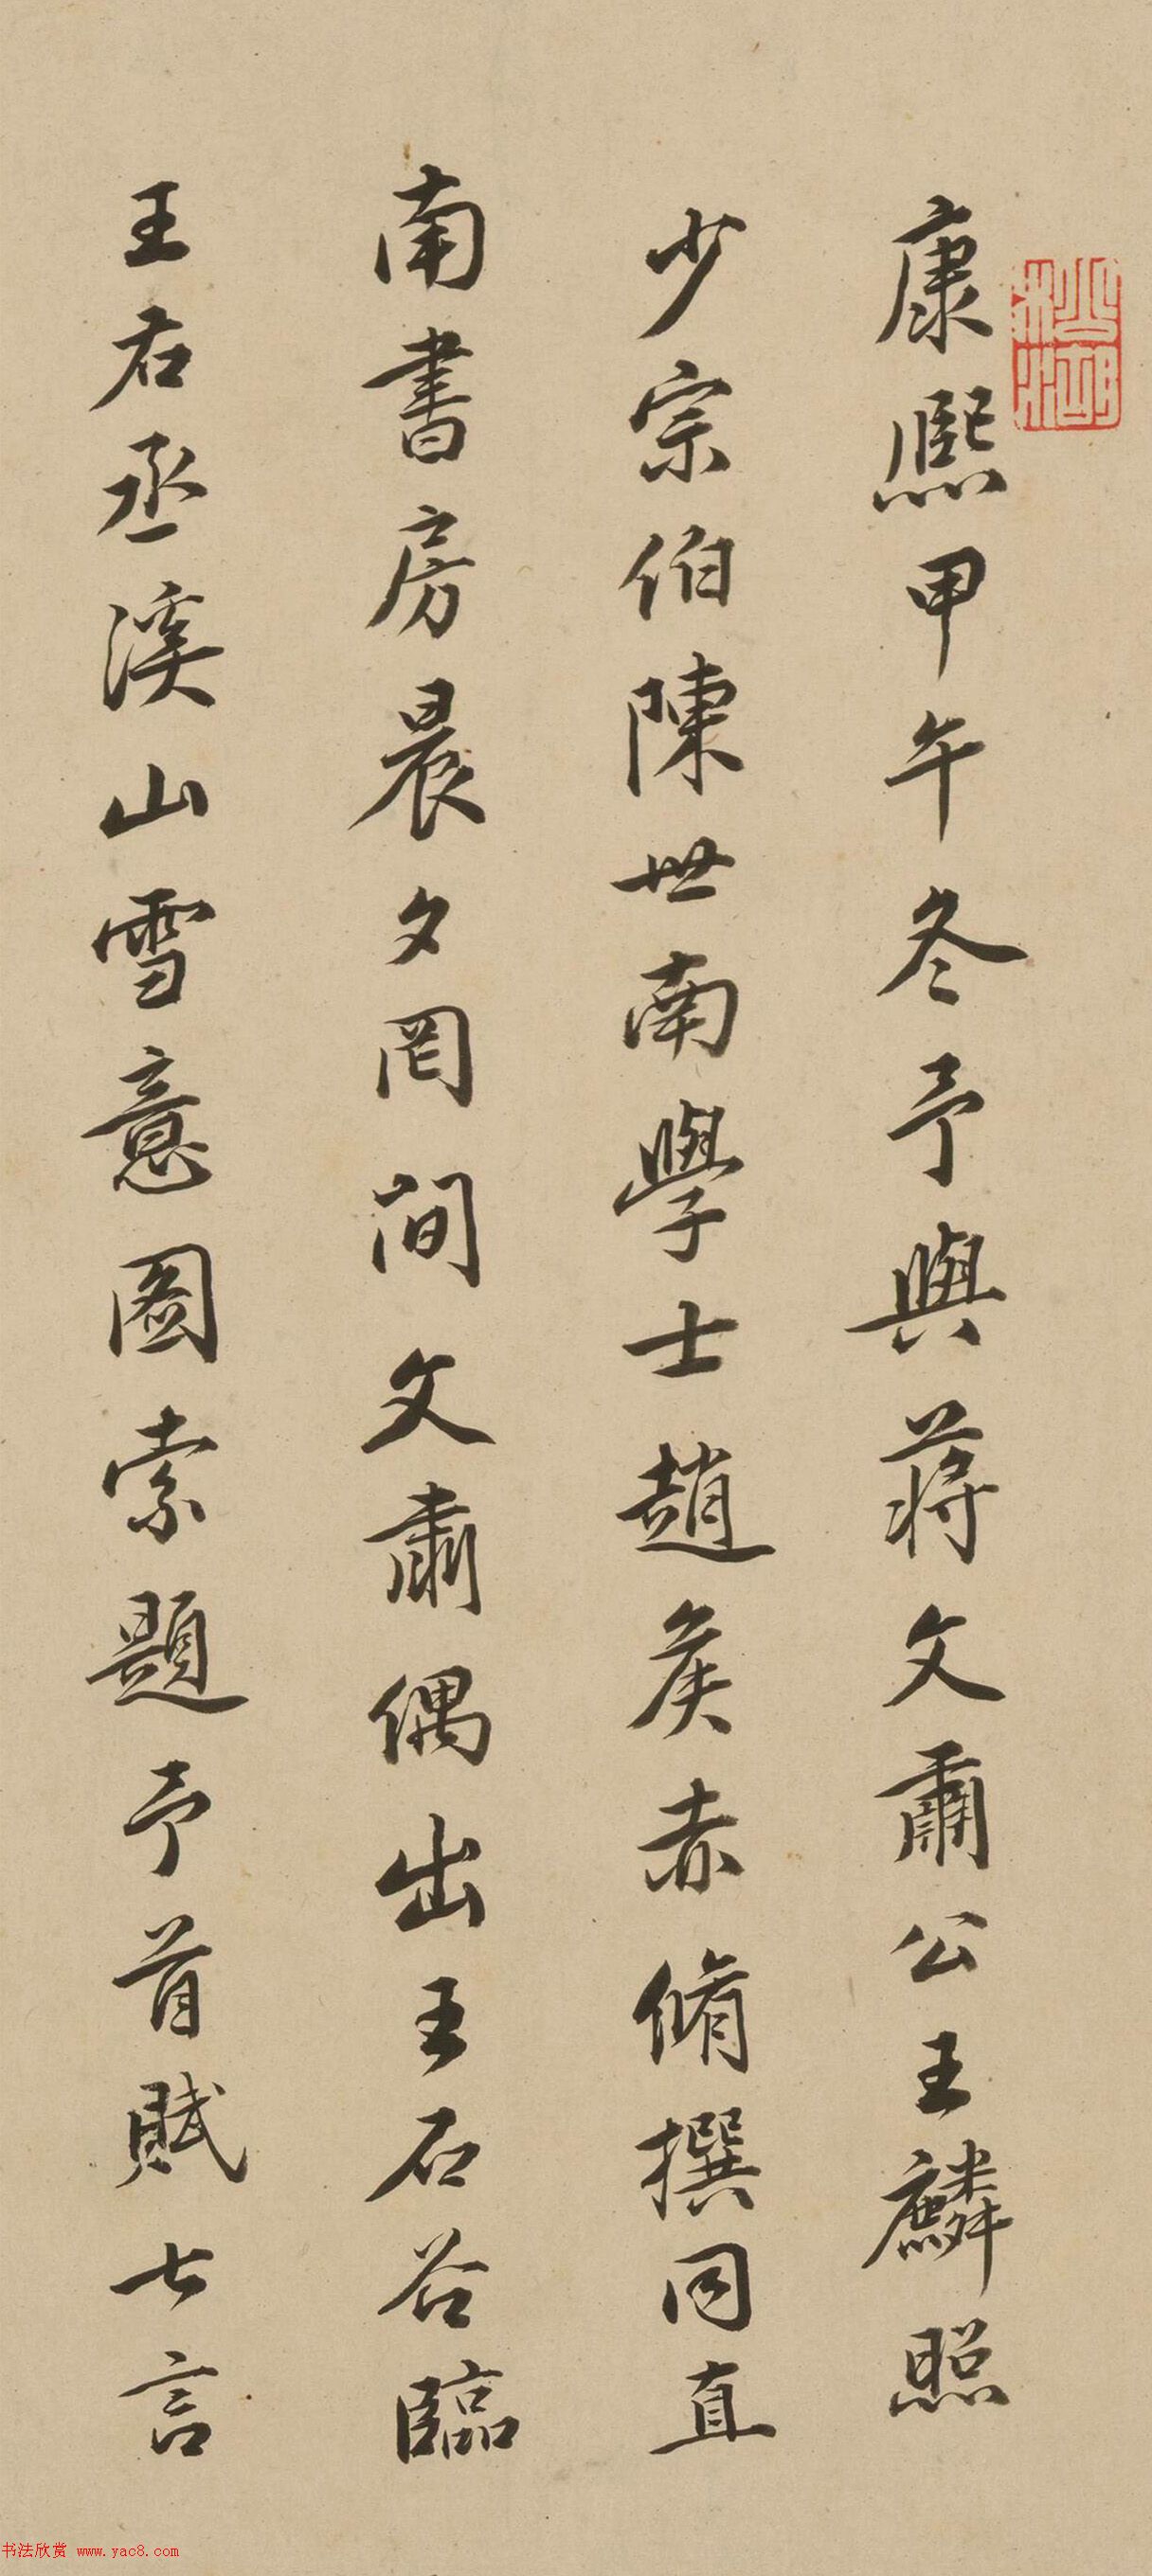 康熙甲午冬予與蔣文肅公王麟照
少宗伯陳世南學士趙矦赤脩撰同直
南書房晨夕罔間文肅偶出王石谷臨
王右丞溪山雪意圖索題予首賦七言
书法欣赏 www.yac8.com